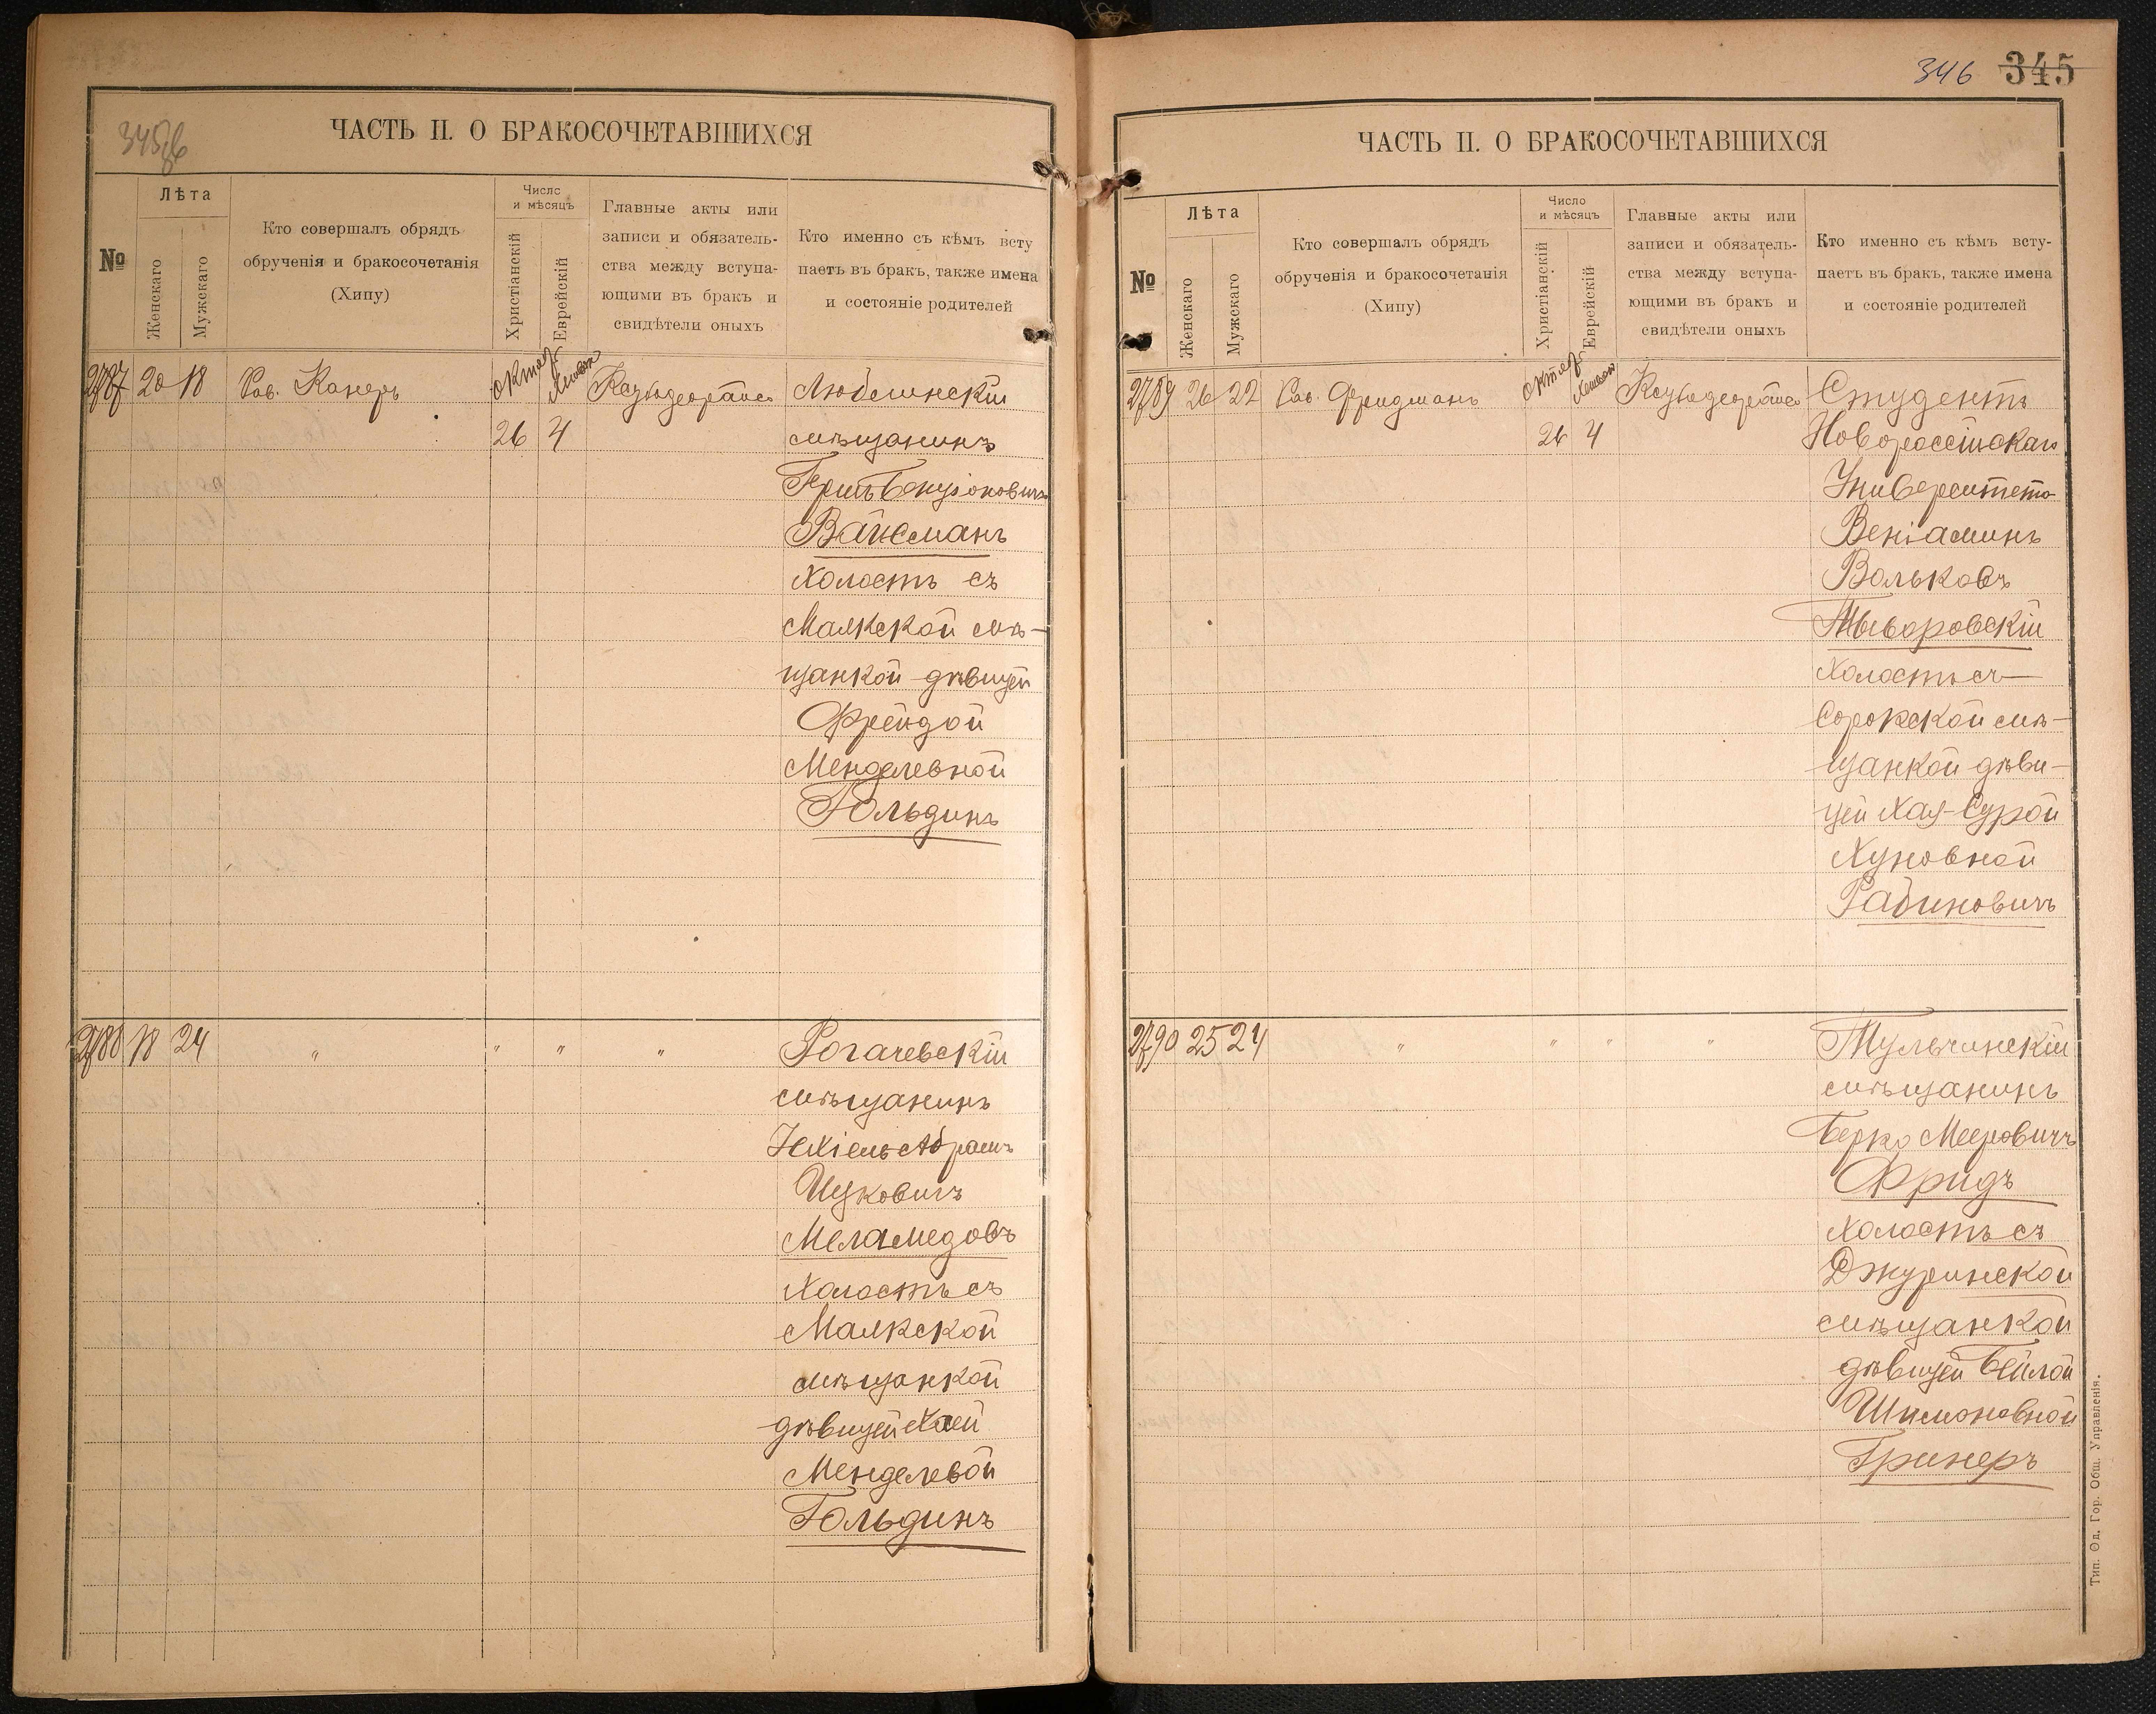 345об
ЧАСТЬ II. О БРАКОСОЧЕТАВШИХСЯ
№
Лѣта
Женскаго
Мужскаго
Кто совершалъ обрядъ
обрученія и бракосочетанія
(Хипу)
Число
и мѣсяцъ
Христіанскій
Еврейскій
Главные акты или
записи и обязатель-
ства между вступа-
ющими въ бракъ и
свидѣтели оныхъ
Кто именно съ кѣмъ всту
паетъ въ бракъ, также имена
и состояніе родителей
2787 20 18 Рав. Канеръ
26 4
Любешискій
мѣщанинъ
Вайсманъ
Холостъ съ
Маякской мѣ-
щанкой дѣвицей
Фрейдой
Менделевной
Гольдинъ
2788 18 24 " " " "
Рогачевскій
мѣщанинъ
Ихіель Абрамъ
Ицковичъ
Меламедовъ
Холостъ съ
Маякской
мѣщанкой
дѣвицей Хаей
Менделевой
Гольдинъ
346 345
ЧАСТЬ II. О БРАКОСОЧЕТАВШИХСЯ
№
Лѣта
Женскаго
Мужскаго
Кто совершалъ обрядъ
обрученія и бракосочетанія
(Хипу)
Число
и мѣсяцъ
Христіанскій
Еврейскій
Главные акты или
записи и обязатель-
ства между вступа-
ющими въ бракъ и
свидѣтели оныхъ
Кто именно съ кѣмъ всту-
паетъ въ бракъ, также имена
и состояніе родителей
2789 26 22 Рав. Фридманъ
26 4
Студентъ
Новороссійскаго
Университета
Веніаминъ
Вольковъ
Тыворовскій
Холостъ съ
Сорокской мѣ-
щанкой дѣви-
цей Хая-Сурой
Хуновной
Рабиновичъ
2790 25 24 " " " "
Тульчинскій
мѣщанинъ
Берко Мееровичъ
Фридъ
Холостъ съ
Джуринской
мѣщанкой
дѣвицей Бейлой
Шимоновной
Гринеръ
Тип. Од. Гор. Общ. Управленія.